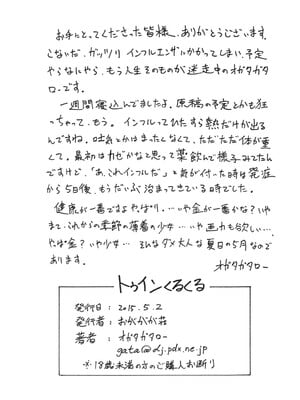 お手にとってくださった皆様、ありがとうございます。
こないだ、ガッツリ インフルエンザにかかってしまい、予定
やらなにやら、もう人生そのものが迷走中のオガタガタ
ローです。
一週間寝込んでましたよ。原稿の予定とかも狂
っちゃって、もう。インフルってひたすら熱だけが出る
んですね。吐気とかはまったくなくて、ただただ体が重
くて。最初はカゼかなと思って薬飲んで様子みてたん
ですけど、「あ、これインフルだ」と気が付いた時は発症
から5日後、もうだいぶ治まってきている時でした。
健康が一番ですよやっぱり。…いや金が一番かな？いや
まて、これからの季節の薄着の少女…いや画力も欲しい…、
やっぱ金？いや少女… そんなダメ大人な夏日の5月なので
あります。
トゥインくるくる
発行日：2015.5.2
発行者：おががが荘
著者：オガタガタロー
gata@dj.pdx.ne.jp
※18歳未満の方のご購入お断り